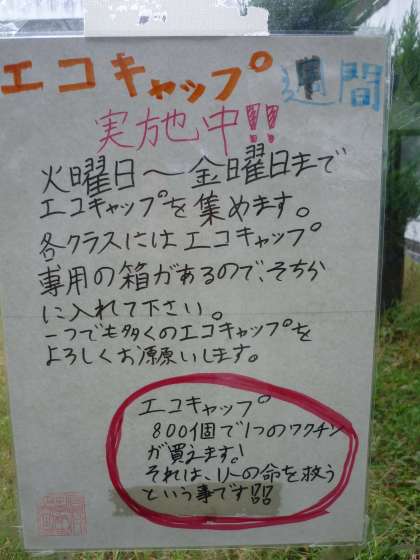 エコキャップ週間
実施中!!
火曜日〜金曜日まで
エコキャップを集めます。
各クラスにはエコキャップ
専用の箱があるので、そちら
に入れて下さい。
一つでも多くのエコキャップを
よろしくお願いします。
エコキャップ
800個で1つのワクチン
が買えます!
それは、1人の命を救う
という事です!!